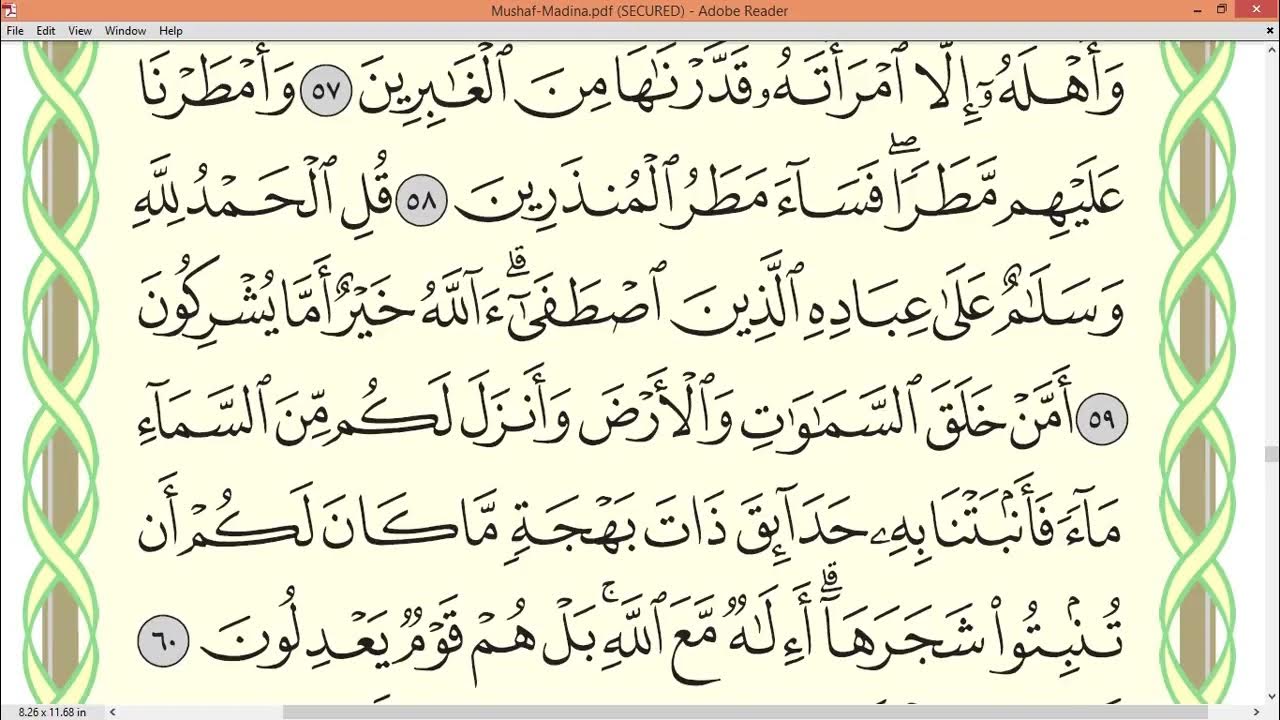 Mushaf-Madina.pdf (SECURED) - Adobe Reader
File Edit View Window Help
وَأَهْلَهُۥٓ إِلَّا ٱمْرَأَتَهُۥ قَدَّرْنَٰهَا مِنَ ٱلْغَٰبِرِينَ ٥٧ وَأَمْطَرْنَا
عَلَيْهِم مَّطَرًۭا ۖ فَسَآءَ مَطَرُ ٱلْمُنذَرِينَ ٥٨ قُلِ ٱلْحَمْدُ لِلَّهِ
وَسَلَٰمٌ عَلَىٰ عِبَادِهِ ٱلَّذِينَ ٱصْطَفَىٰٓ ۗ ءَآللَّهُ خَيْرٌ أَمَّا يُشْرِكُونَ
٥٩ أَمَّنْ خَلَقَ ٱلسَّمَٰوَٰتِ وَٱلْأَرْضَ وَأَنزَلَ لَكُم مِّنَ ٱلسَّمَآءِ
مَآءًۭ فَأَنۢبَتْنَا بِهِۦ حَدَآئِقَ ذَاتَ بَهْجَةٍۢ مَّا كَانَ لَكُمْ أَن
تُنۢبِتُوا۟ شَجَرَهَآ ۗ أَءِلَٰهٌۭ مَّعَ ٱللَّهِ ۚ بَلْ هُمْ قَوْمٌۭ يَعْدِلُونَ ٦٠
8.26 x 11.68 in